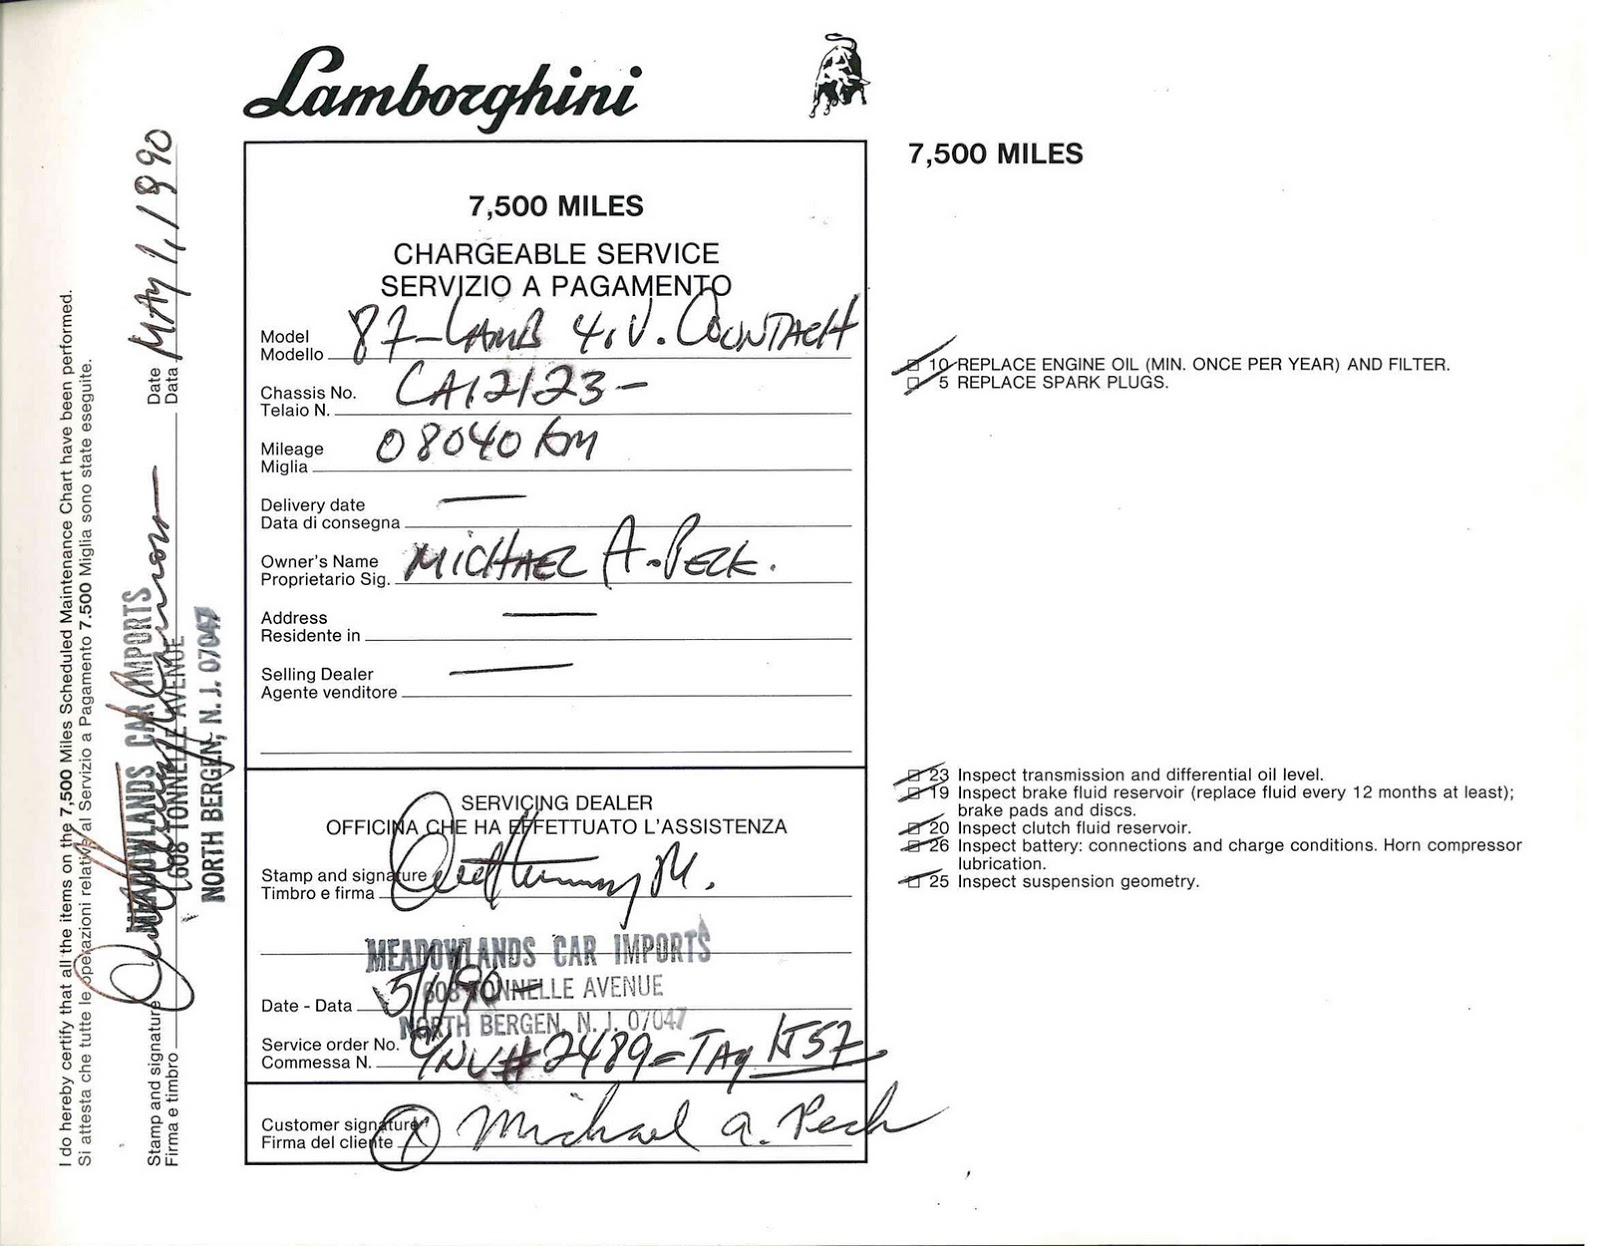 Lamborghini
7,500 MILES
CHARGEABLE SERVICE
SERVIZIO A PAGAMENTO
Model 87-LAMB 4.V. COUNTACH
Modello
Chassis No. CA12123-
Telaio N.
Mileage 08040 Km
Miglia
Delivery date —
Data di consegna
Owner's Name MICHAEL A. PECK.
Proprietario Sig.
Address —
Residente in
Selling Dealer —
Agente venditore
SERVICING DEALER
OFFICINA CHE HA EFFETTUATO L'ASSISTENZA
Stamp and signature
Timbro e firma
MEADOWLANDS CAR IMPORTS
608 TONNELLE AVENUE
Date - Data 5/1/90
NORTH BERGEN, N. J. 07047
Service order No. INV# 2489 = TAG
Commessa N.
Customer signature X Michael A. Peck
Firma del cliente
7,500 MILES
10 REPLACE ENGINE OIL (MIN. ONCE PER YEAR) AND FILTER.
5 REPLACE SPARK PLUGS.
23 Inspect transmission and differential oil level.
19 Inspect brake fluid reservoir (replace fluid every 12 months at least);
brake pads and discs.
20 Inspect clutch fluid reservoir.
26 Inspect battery: connections and charge conditions. Horn compressor
lubrication.
25 Inspect suspension geometry.
I do hereby certify that all the items on the 7,500 Miles Scheduled Maintenance Chart have been performed.
Si attesta che tutte le operazioni relative al Servizio a Pagamento 7.500 Miglia sono state eseguite.
Stamp and signature Date MAY 1, 1990
Firma e timbro Data
MEADOWLANDS CAR IMPORTS
608 TONNELLE AVENUE
NORTH BERGEN, N. J. 07047